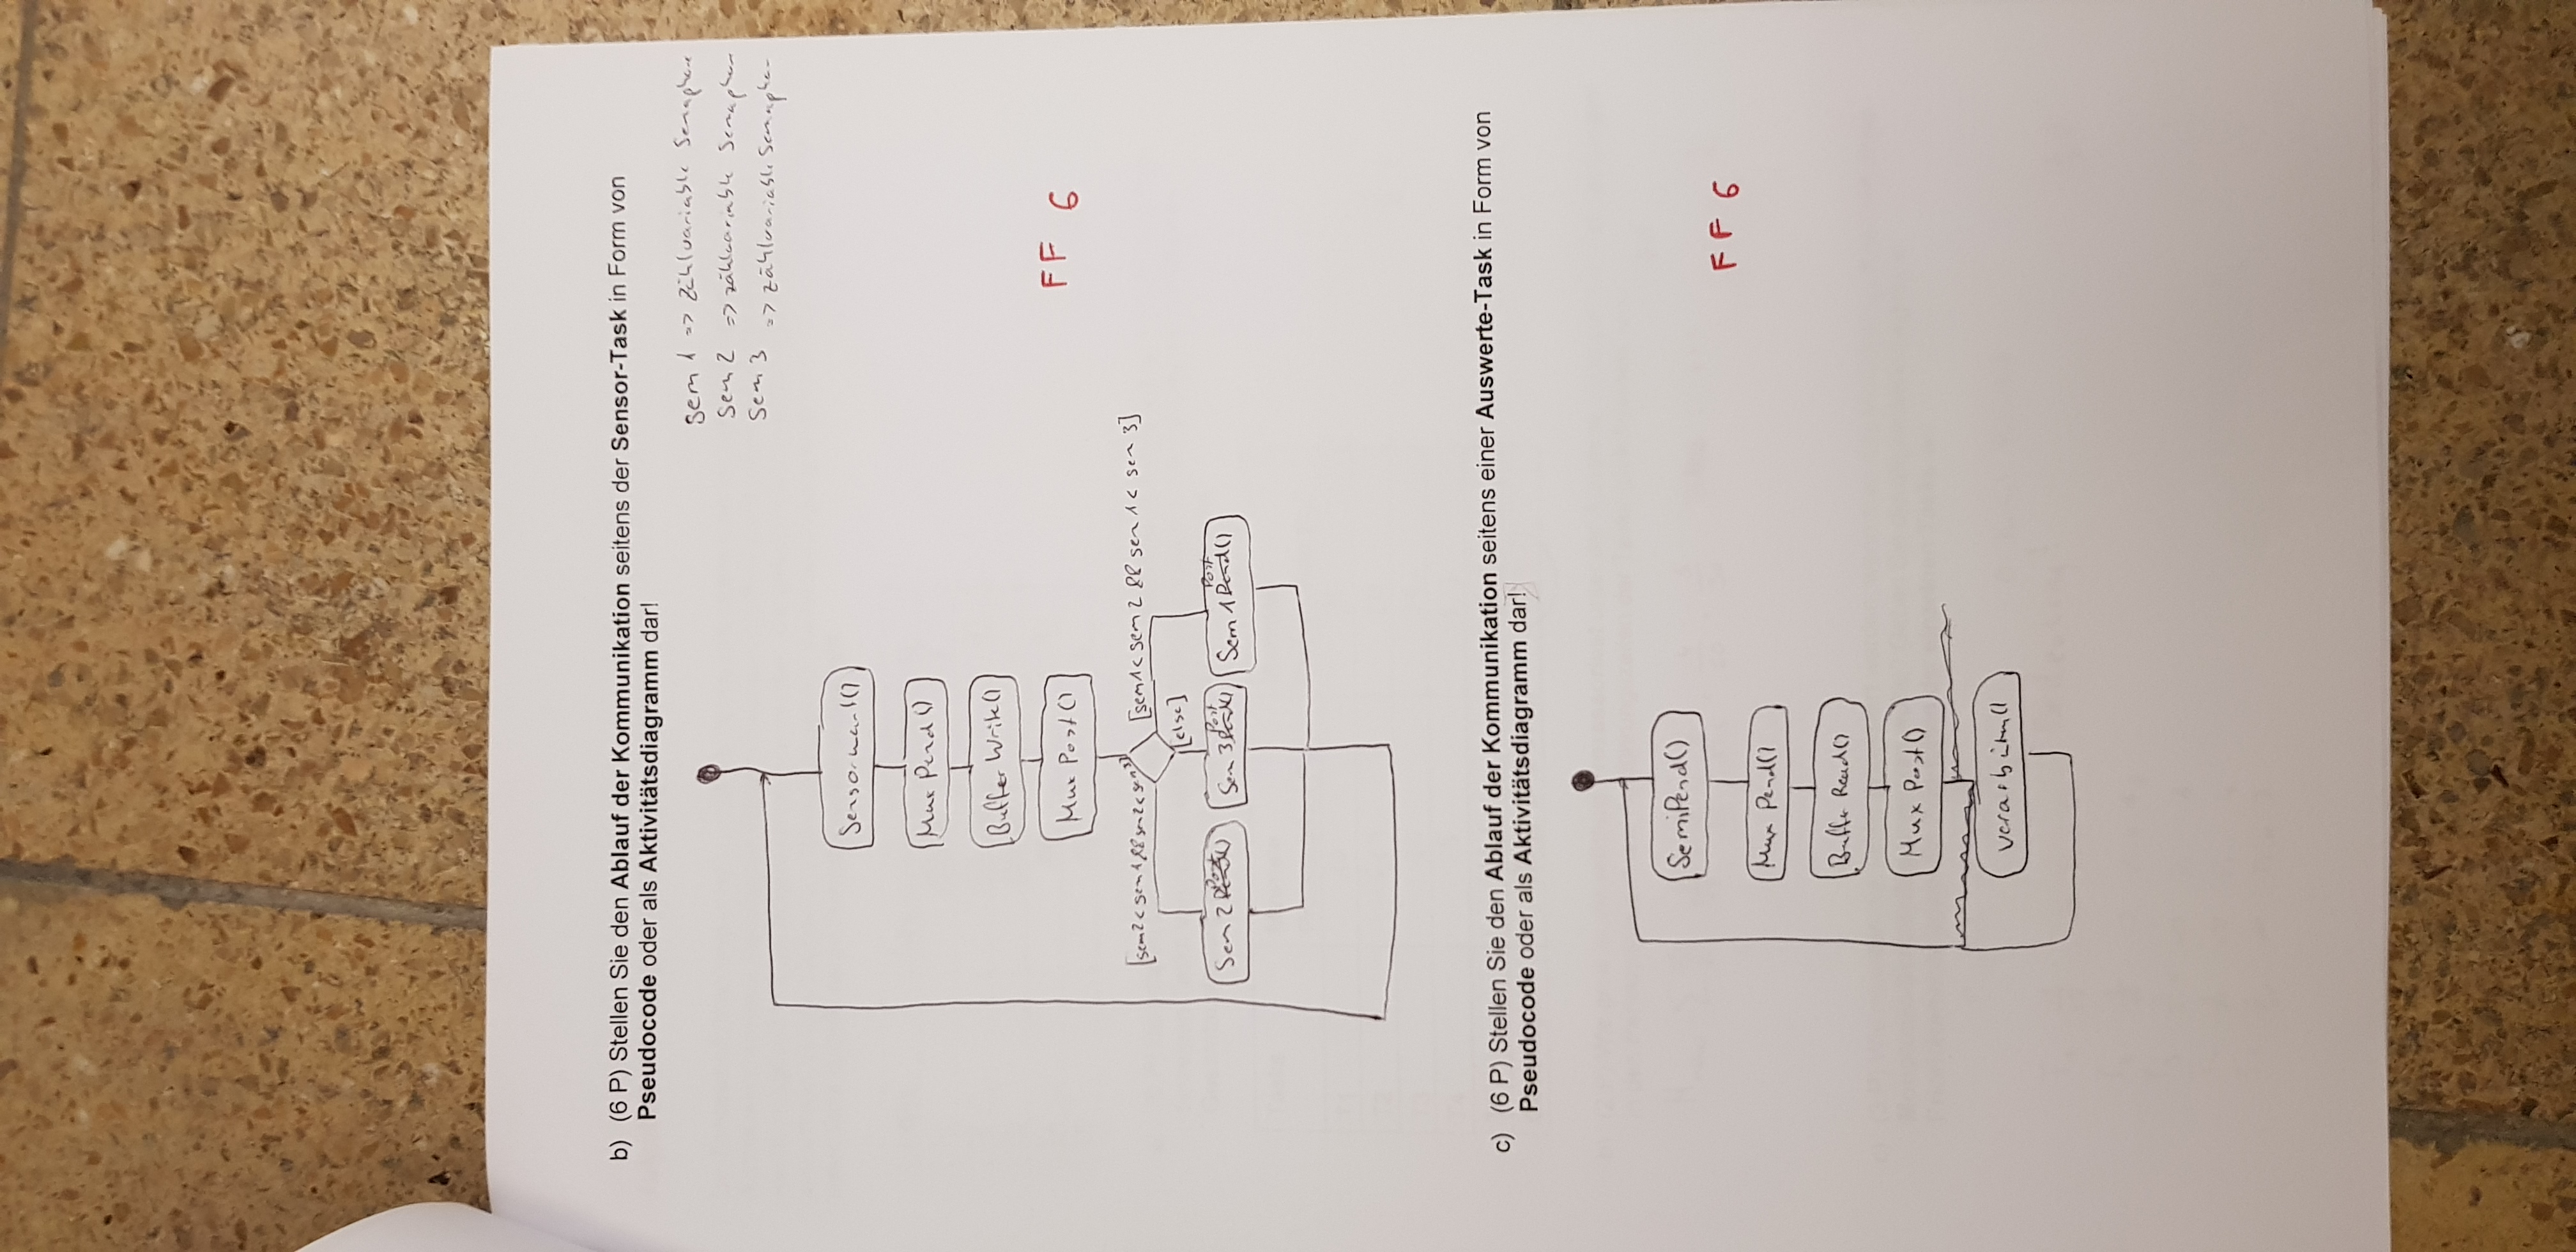 b) (6 P) Stellen Sie den Ablauf der Kommunikation seitens der Sensor-Task in Form von
Pseudocode oder als Aktivitätsdiagramm dar!
sem 1 => Zählvariable Semaphore
Sem 2 => zählvariable Semaphore
Sem 3 => zählvariable Semaphor
Sensorwert()
Mux Pend()
Buffer Write()
Mux Post()
FF 6
[sem2 < sem1 && sem2 < sem3]
[sem1 < sem 2 && sem 1 < sem 3]
[else]
Sem 2 Post()
Sem 3 Post()
Sem 1 Post()
c) (6 P) Stellen Sie den Ablauf der Kommunikation seitens einer Auswerte-Task in Form von
Pseudocode oder als Aktivitätsdiagramm dar!
SemiPend()
Mux Pend()
Buffer Read()
Mux Post()
FF 6
verarbeiten()